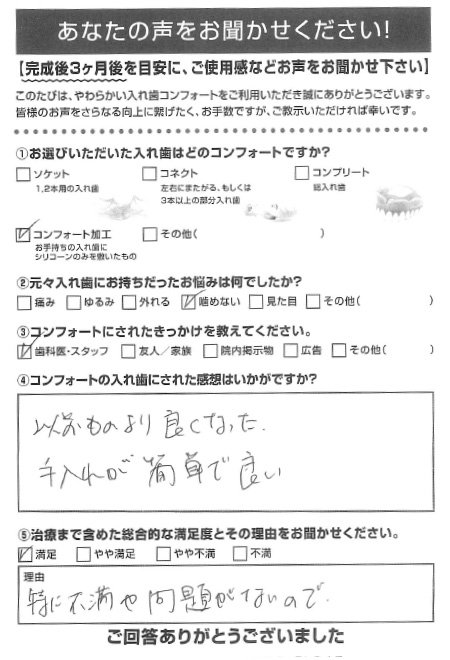 あなたの声をお聞かせください!
【完成後3ヶ月後を目安に、ご使用感などお声をお聞かせ下さい】
このたびは、やわらかい入れ歯コンフォートをご利用いただき誠にありがとうございます。
皆様のお声をさらなる向上に繋げたく、お手数ですが、ご教示いただければ幸いです。
①お選びいただいた入れ歯はどのコンフォートですか?
□ソケット
1,2本用の入れ歯
□コネクト
左右にまたがる、もしくは
3本以上の部分入れ歯
□コンプリート
総入れ歯
☑コンフォート加工
お手持ちの入れ歯に
シリコーンのみを敷いたもの
□その他( )
②元々入れ歯にお持ちだったお悩みは何でしたか?
□痛み □ゆるみ □外れる ☑噛めない □見た目 □その他( )
③コンフォートにされたきっかけを教えてください。
☑歯科医・スタッフ □友人/家族 □院内掲示物 □広告 □その他( )
④コンフォートの入れ歯にされた感想はいかがですか?
以前ものより良くなった.
手入れが簡単で良い
⑤治療まで含めた総合的な満足度とその理由をお聞かせください。
☑満足 □やや満足 □やや不満 □不満
理由
特に不満や問題がないので.
ご回答ありがとうございました